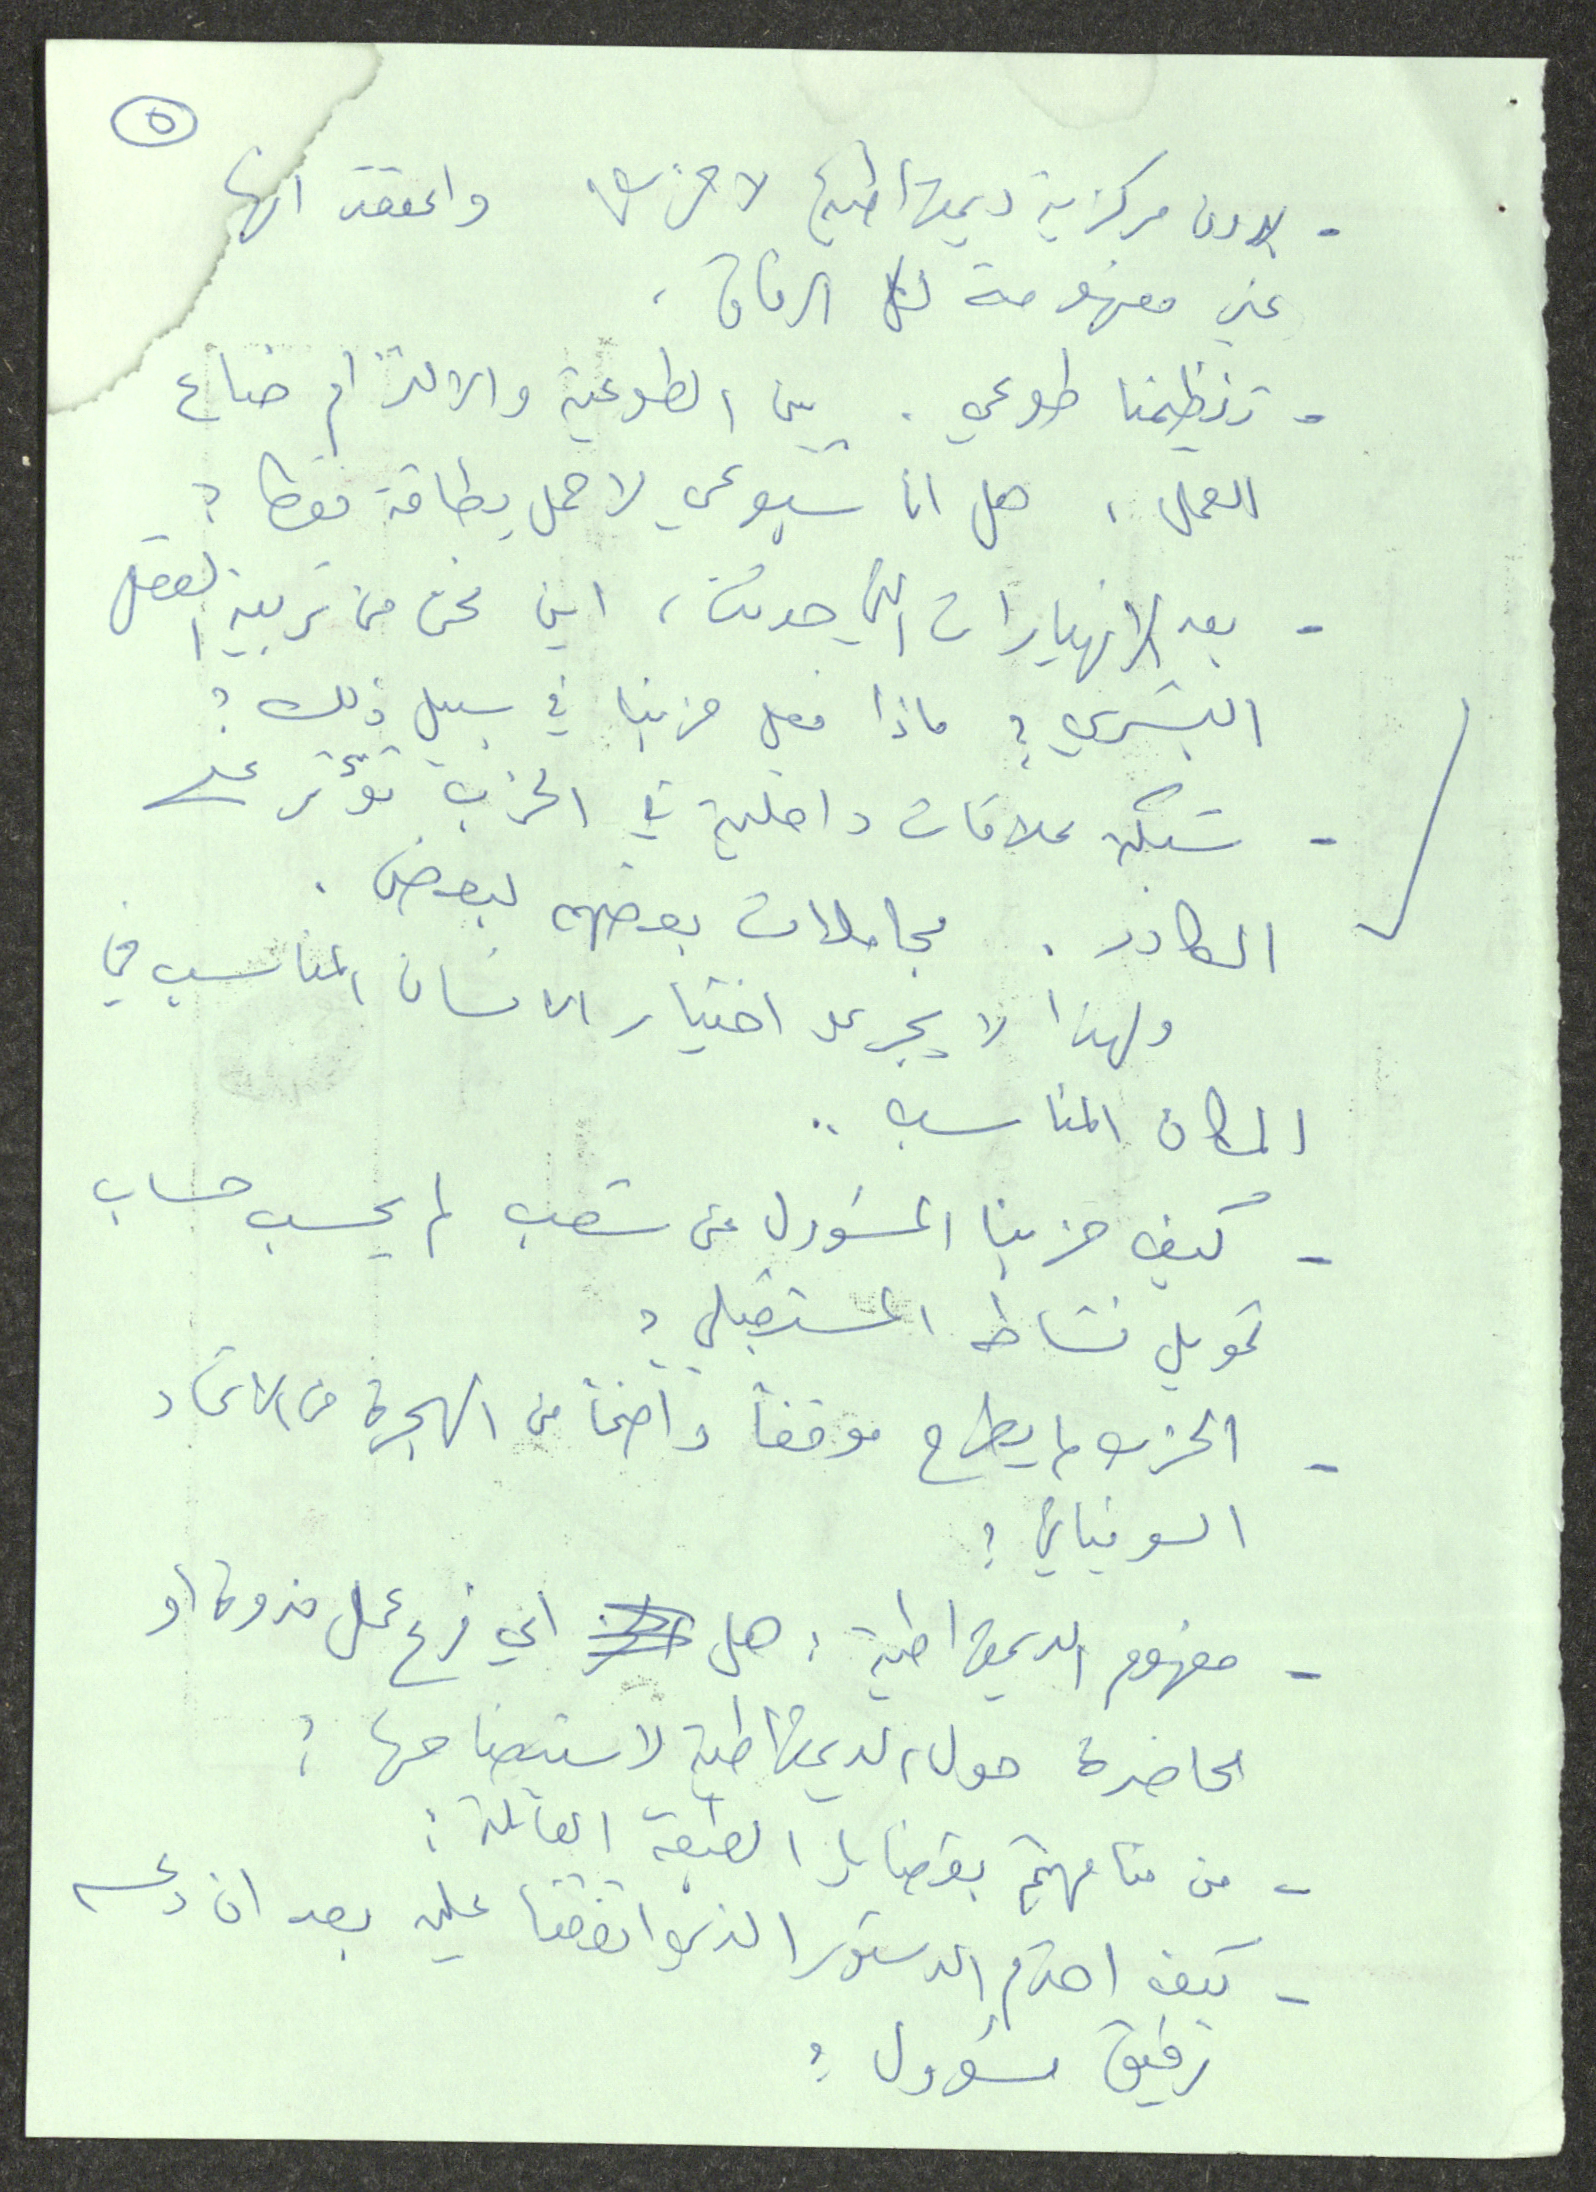 ٥
- بدون مركزية ديمقراطية لا حزب واعتقد انها
غير مفهومة لكل الرفاق .
- تنظيمنا طوعي . بين الطوعية والالتزام ضاع
العمل ، هل انا شيوعي لاحمل بطاقة فقط ؟
- بعد الانهيارات التي حدثت ، اين نحن من تربية العقل
البشري ؟ ماذا فعل حزبنا في سبيل ذلك ؟
- شبكة علاقات داخلية في الحزب تؤثر على
الكادر . مجاملات بعضهم لبعض .
ولهذا لا يجري اختيار الانسان المناسب في
المكان المناسب ..
- كيف حزبنا المسؤول عن شعب لم يحسب حساب
تمويل نشاطه المستقبلي ؟
- الحزب لم يطرح موقفا واضحا من الهجرة من الاتحاد
السوفياتي ؟
- مفهوم الديمقراطية : هل اي فرع عمل ندوة او
محاضرة حول الديمقراطية لاستيضاحها ؟
- من منا مهتم بقضايا الطبقة العاملة ؟
- كيف احترم الدستور الذي اتفقنا عليه بعد ان دعسه
رفيق مسؤول ؟